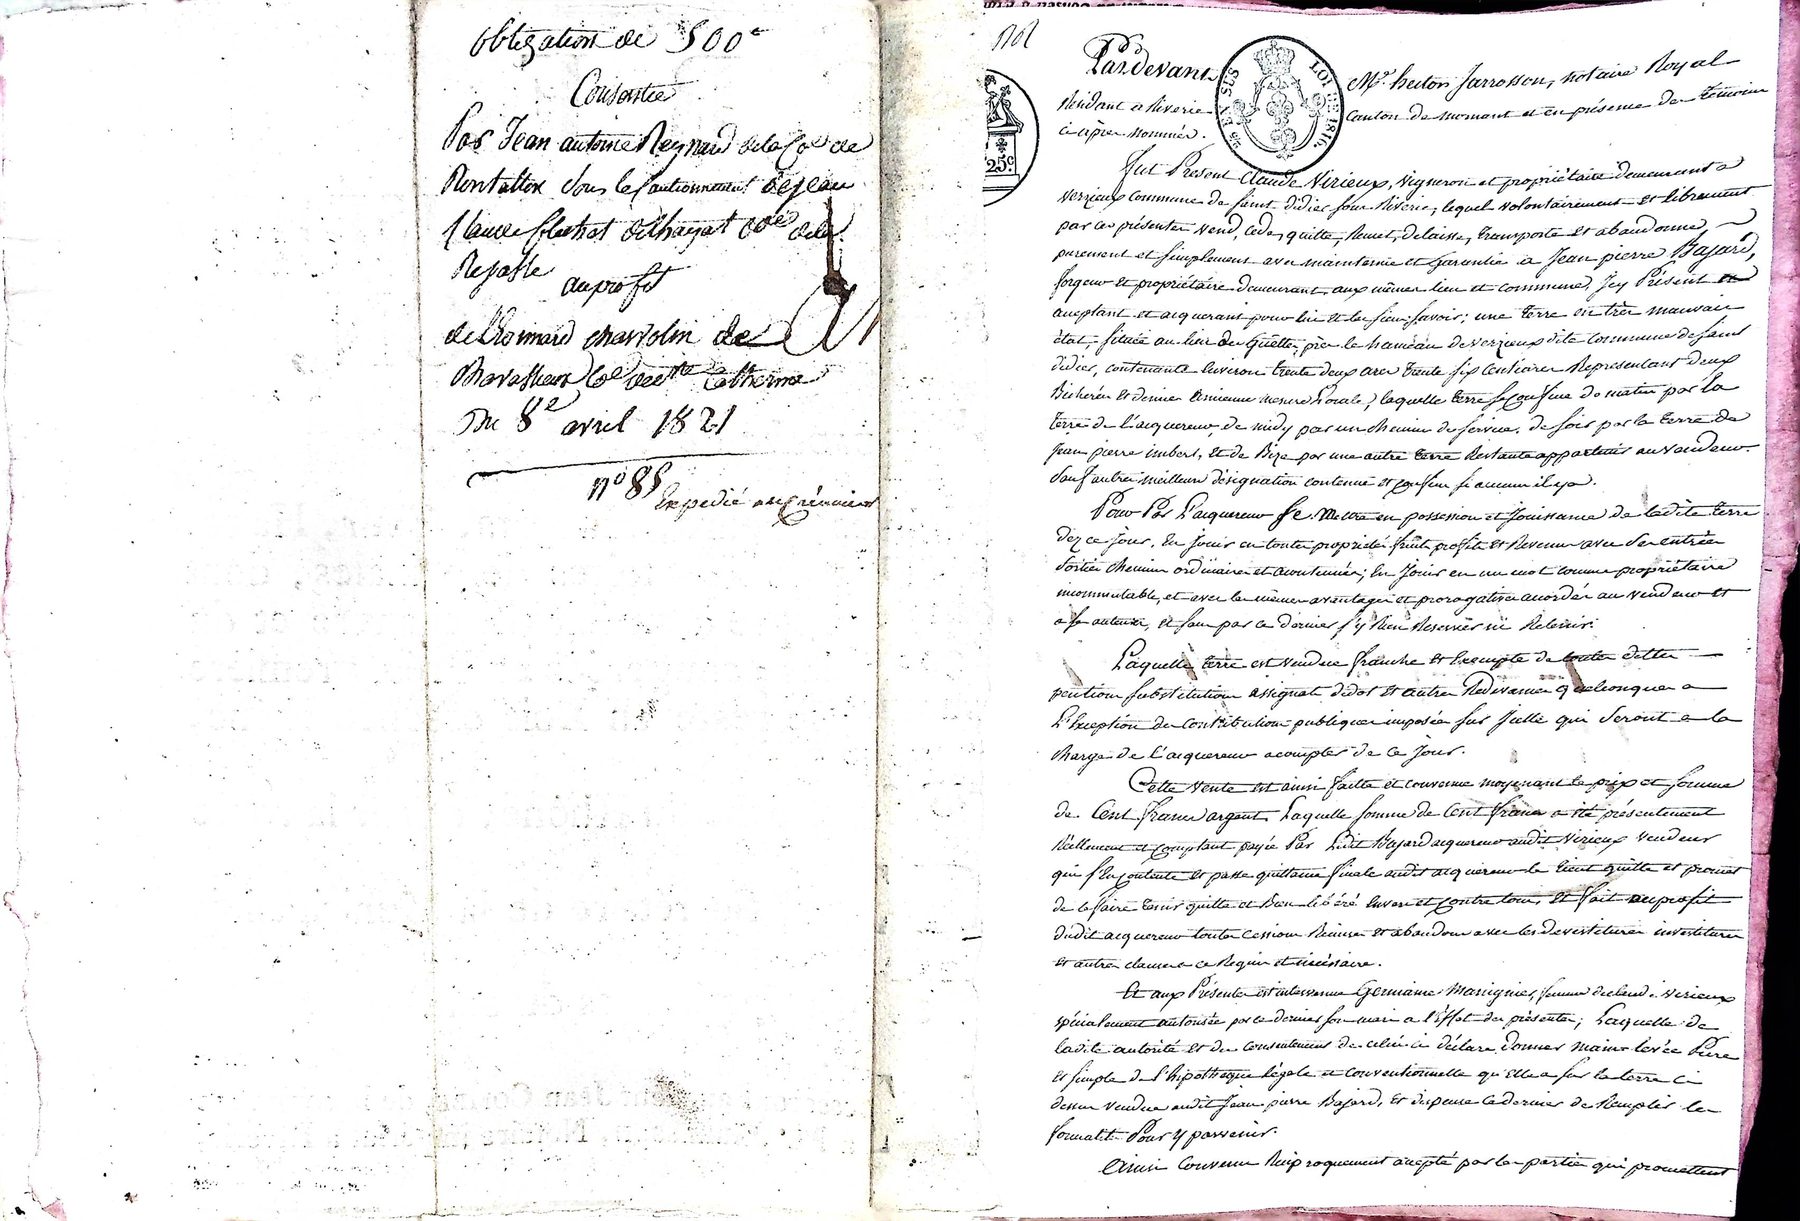 obligation de 500 f
Consentie
Par Jean antoine Reynard de la Coe de
Rontallon sous le Cautionnement de jean
Claude flechet de thayat Coe de la
Rejasse
au profit
de Leonnard charvolin de
Chavassieux Coe de Ste Catherine
Du 8e avril 1821
n° 85
Expedié au Créancier
25 c.
25 EN SUS LOI DE 1816.
Pardevant Me hector Jarrosson, notaire Royal
Résidant a Riverie canton de mornant et en présence des témoins
ci après nommés.
Fut Present Claude Virieux, vigneron et propriétaire demeurant a
verzieux commune de Saint didier sous Riverie, lequel volontairement et librement
par ces présentes vend, cede, quitte, Remet, delaisse, transporte et abandonne,
purement et simplement avec maintenue et garantie a Jean pierre Bajard,
forgeur et propriétaire demeurant aux mêmes lieu et commune, Icy Présent et
aceptant et acquerant pour lui et les siens, savoir; une terre en très mauvais
état située au lieu des Guettes, près le hameau de verzieux dite commune de Saint
didier, contenante environ trente deux ares trente six centiares Representant deux
Bicherées et demies ancienne mesure locale, laquelle terre se Confine de matin par la
terre de l'acquereur, de midy par un chemin de service, de soir par la terre de
Jean pierre imbert, et de Bize par une autre terre Restante appartenir au vendeur.
Sauf autres meilleurs désignation contenue et confins si aucuns il y a.
Pour Par L'acquereur se mettre en possession et Jouissance de ladite terre
dez ce jour, En Jouir en toute propriété fruits profits et Revenus avec ses entrées
sorties chemins ordinaires et acoutumées; En Jouir en un mot comme propriétaire
incommutable, et avec les mêmes aventages et prerogatives acordés au vendeur et
a ses auteurs, et sans par ce dernier s'y Rien Reserver ni Retenir.
Laquelle terre est vendue franche et Exempte de toutes dettes
pentions substitutions assignat didot et autres Redevances quelconques a
L'Exception des Contributions publiques imposées sur Icelle qui seront a la
charge de l'acquereur a compter de ce Jour.
Cette vente est ainsi faitte et convenue moyenant le prix et somme
de Cent francs argent. Laquelle somme de Cent francs a été présentement
Réellement et comptant payée Par Ledit Bajard acquereur audit Virieux vendeur
qui s'En contente et passe quittance finale audit acquereur le tient quitte et promet
de le faire tenir quitte et Bien libéré Envers et contre tous, Et fait au profit
dudit acquereur toutes cessions Remises et abandons avec les devestitures investitures
et autres clauses a ce Requis et nécéssaire.
Et aux Présentes est intervenue Germaine Marignier, femme dudit Claude Virieux
spécialement autorisée par ce dernier son mari a l'Effet des présentes; Laquelle de
ladite autorité et du Consentement de celui ci déclare donner main levée Pure
et simple de l'hipothèque légale et conventionnelle qu'Elle a sur la terre ci
dessus vendue audit Jean pierre Bajard, et dispense ce dernier de Remplir les
formalités Pour y parvenir.
Ainsi Convenu Reciproquement acepté par les parties qui promettent